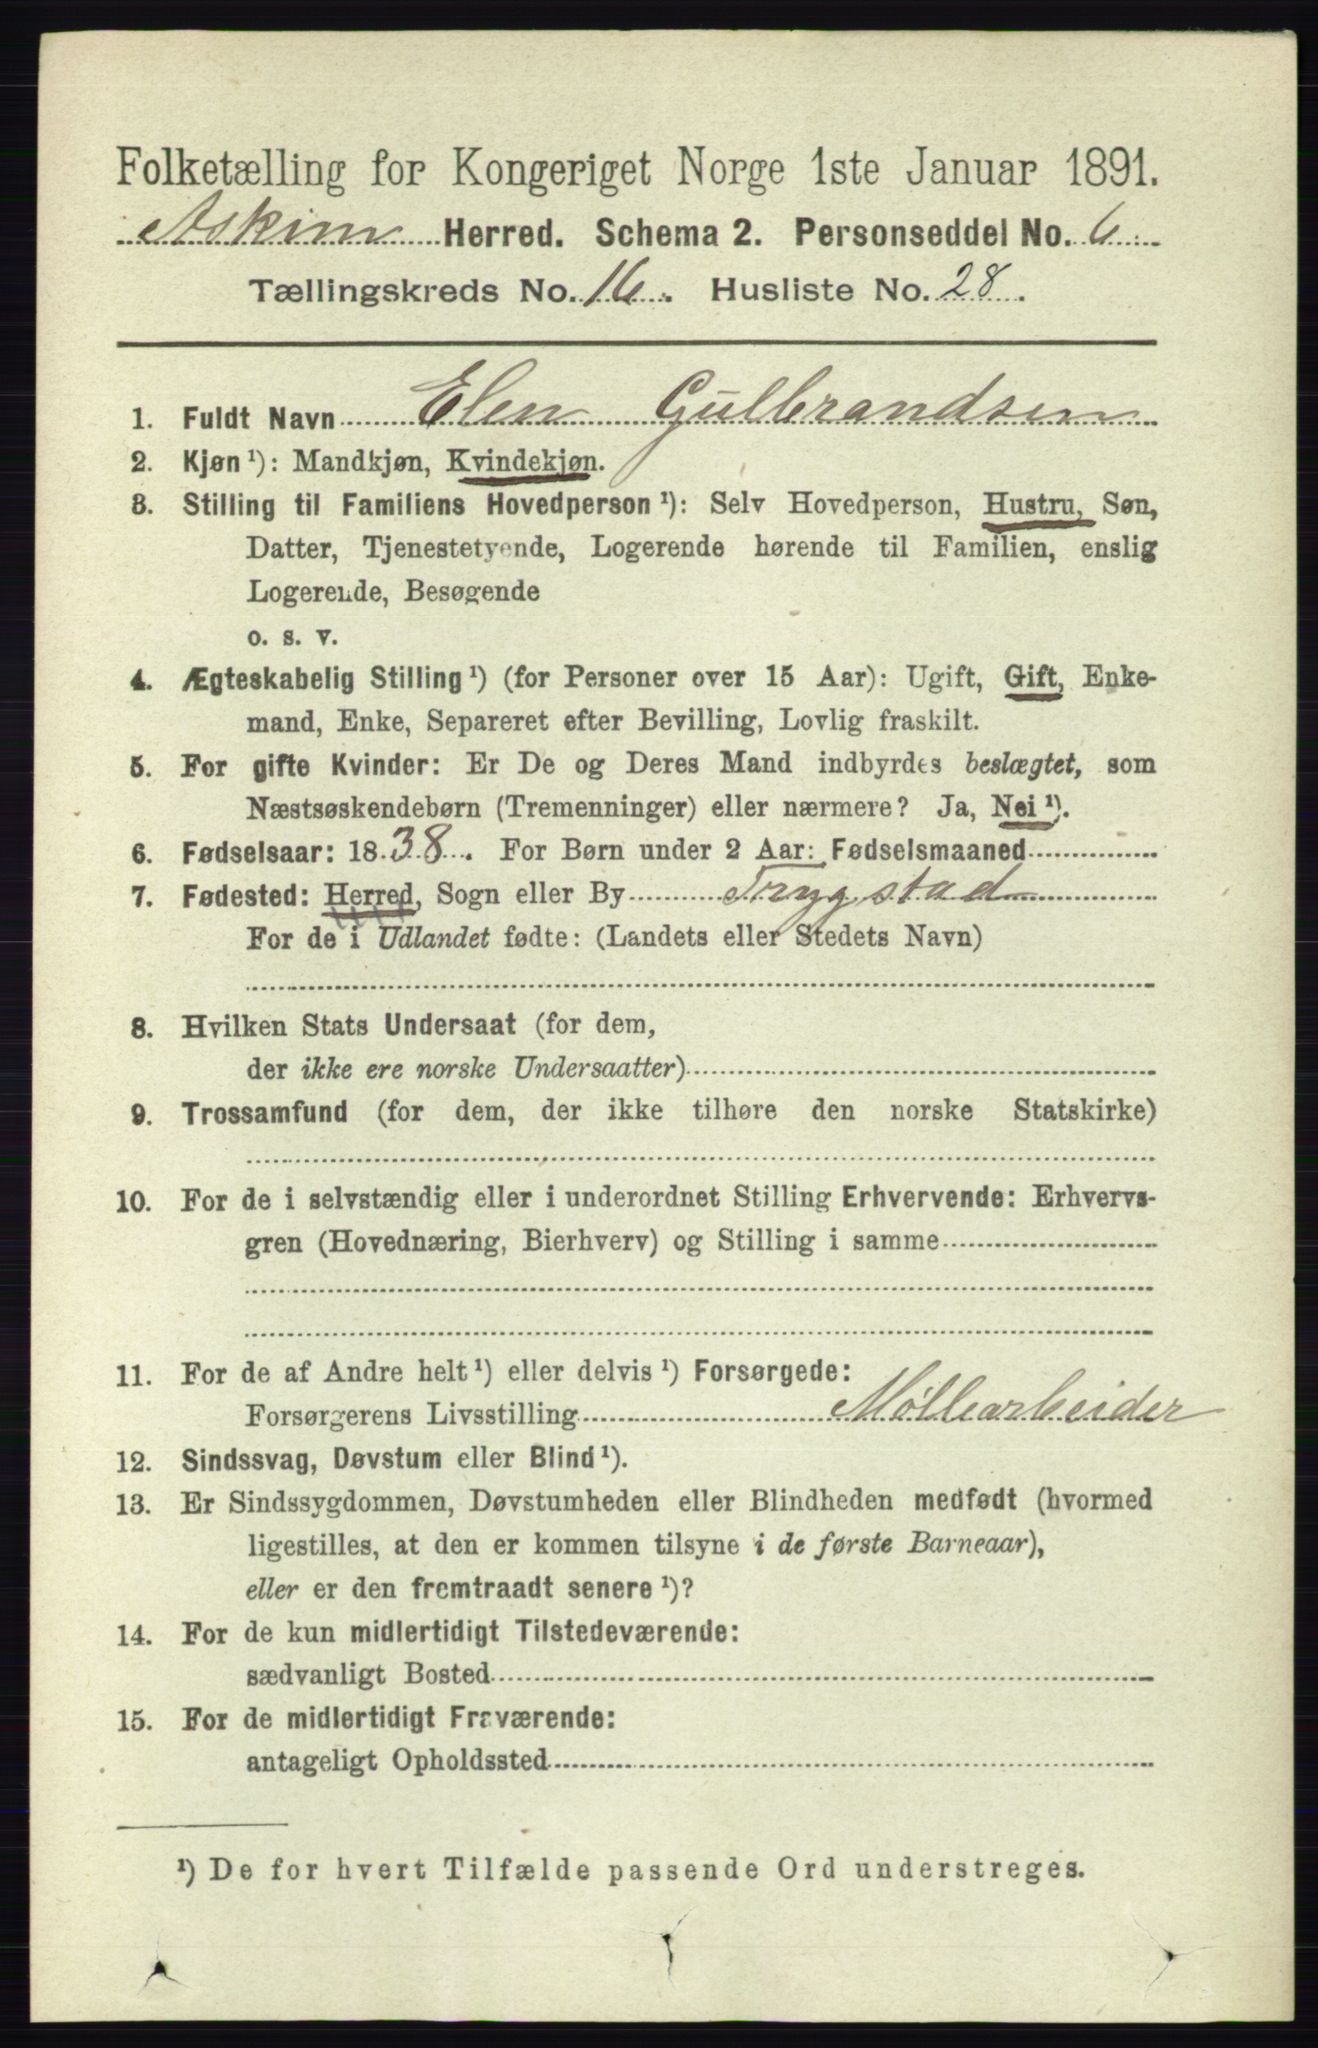 Folketælling for Kongeriget Norge 1ste Januar 1891.
Askim Herred. Schema 2. Personseddel No. 6
Tællingskreds No. 16. Husliste No. 28.
1. Fuldt Navn Elen Gulbrandsen
2. Kjøn¹): Mandkjøn, Kvindekjøn.
3. Stilling til Familiens Hovedperson¹): Selv Hovedperson, Hustru, Søn,
Datter, Tjenestetyende, Logerende hørende til Familien, enslig
Logerende, Besøgende
o. s. v.
4. Ægteskabelig Stilling¹) (for Personer over 15 Aar): Ugift, Gift, Enke-
mand, Enke, Separeret efter Bevilling, Lovlig fraskilt.
5. For gifte Kvinder: Er De og Deres Mand indbyrdes beslægtet, som
Næstsøskendebørn (Tremenninger) eller nærmere? Ja, Nei¹).
6. Fødselsaar: 1838. For Børn under 2 Aar: Fødselsmaaned
7. Fødested: Herred, Sogn eller By Trygstad
For de i Udlandet fødte: (Landets eller Stedets Navn)
8. Hvilken Stats Undersaat (for dem,
der ikke ere norske Undersaatter)
9. Trossamfund (for dem, der ikke tilhøre den norske Statskirke)
10. For de i selvstændig eller i underordnet Stilling Erhvervende: Erhvervs-
gren (Hovednæring, Bierhverv) og Stilling i samme
11. For de af Andre helt¹) eller delvis¹) Forsørgede:
Forsørgerens Livsstilling Møllearbeider
12. Sindssvag, Døvstum eller Blind¹).
13. Er Sindssygdommen, Døvstumheden eller Blindheden medfødt (hvormed
ligestilles, at den er kommen tilsyne i de første Barneaar),
eller er den fremtraadt senere¹)?
14. For de kun midlertidigt Tilstedeværende:
sædvanligt Bosted
15. For de midlertidigt Fraværende:
antageligt Opholdssted
¹) De for hvert Tilfælde passende Ord understreges.